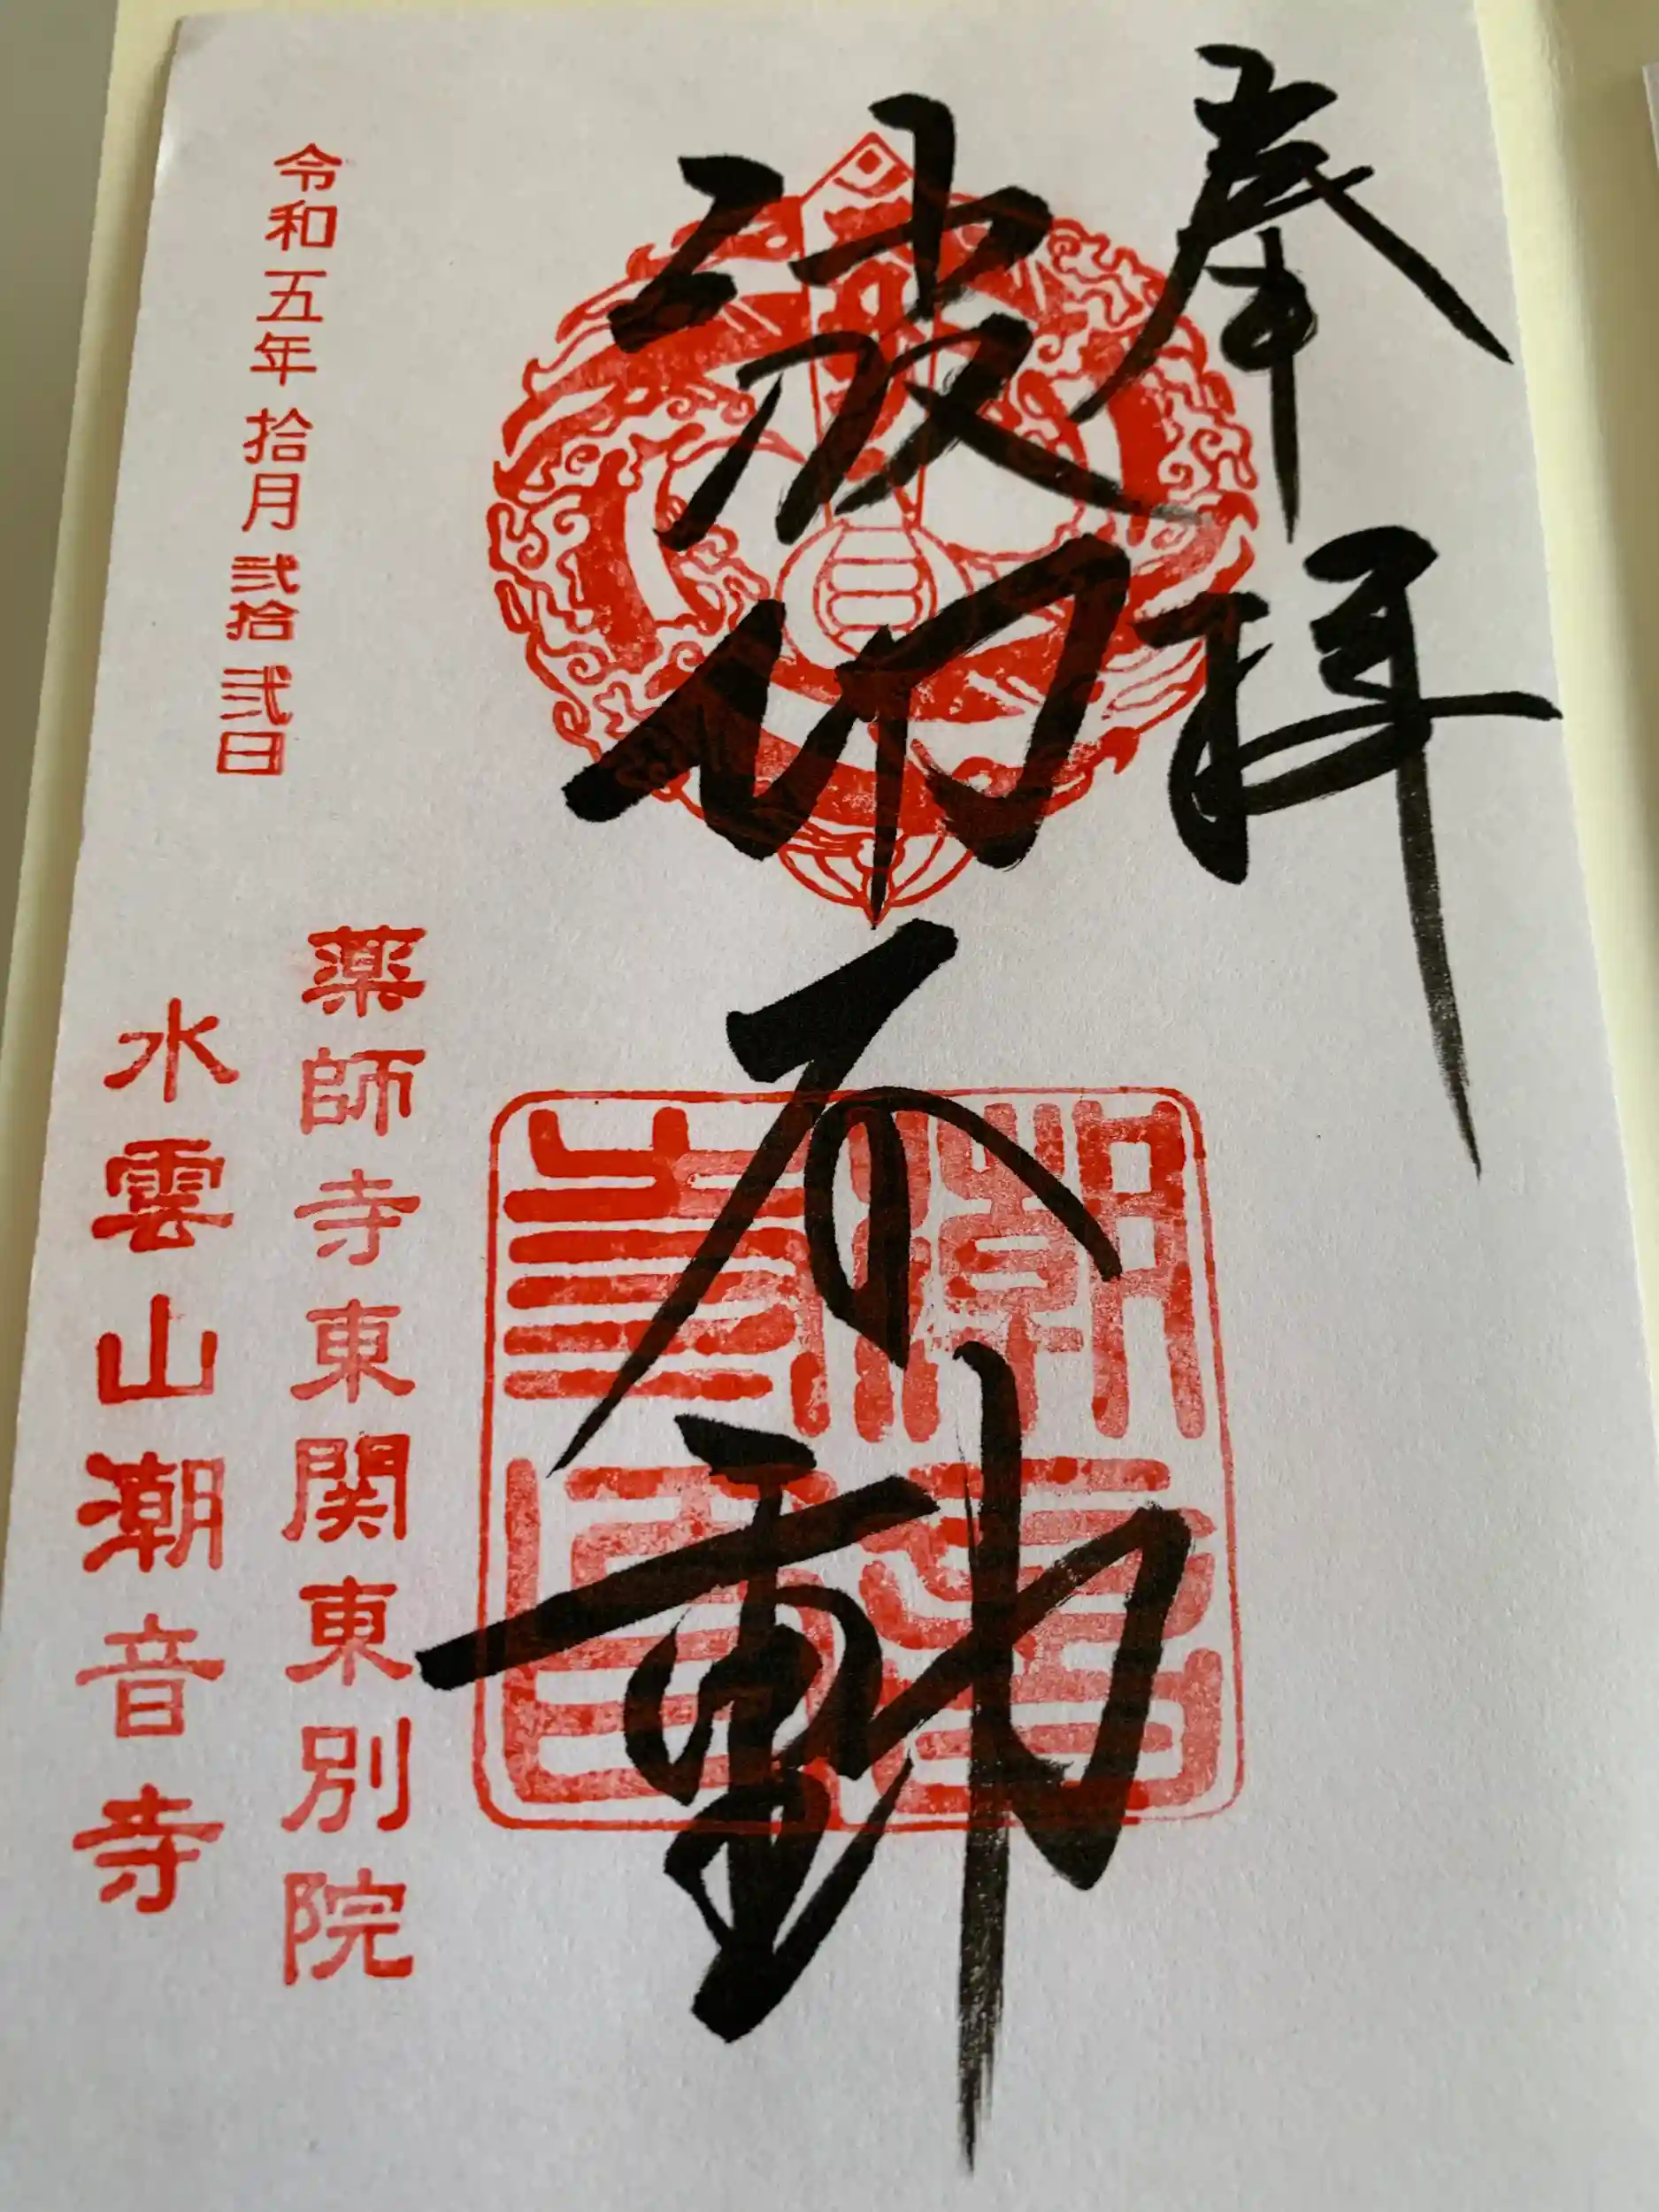 奉拝
波切不動
潮音寺印
薬師寺東関東別院
水雲山潮音寺
令和五年拾月弐拾弐日